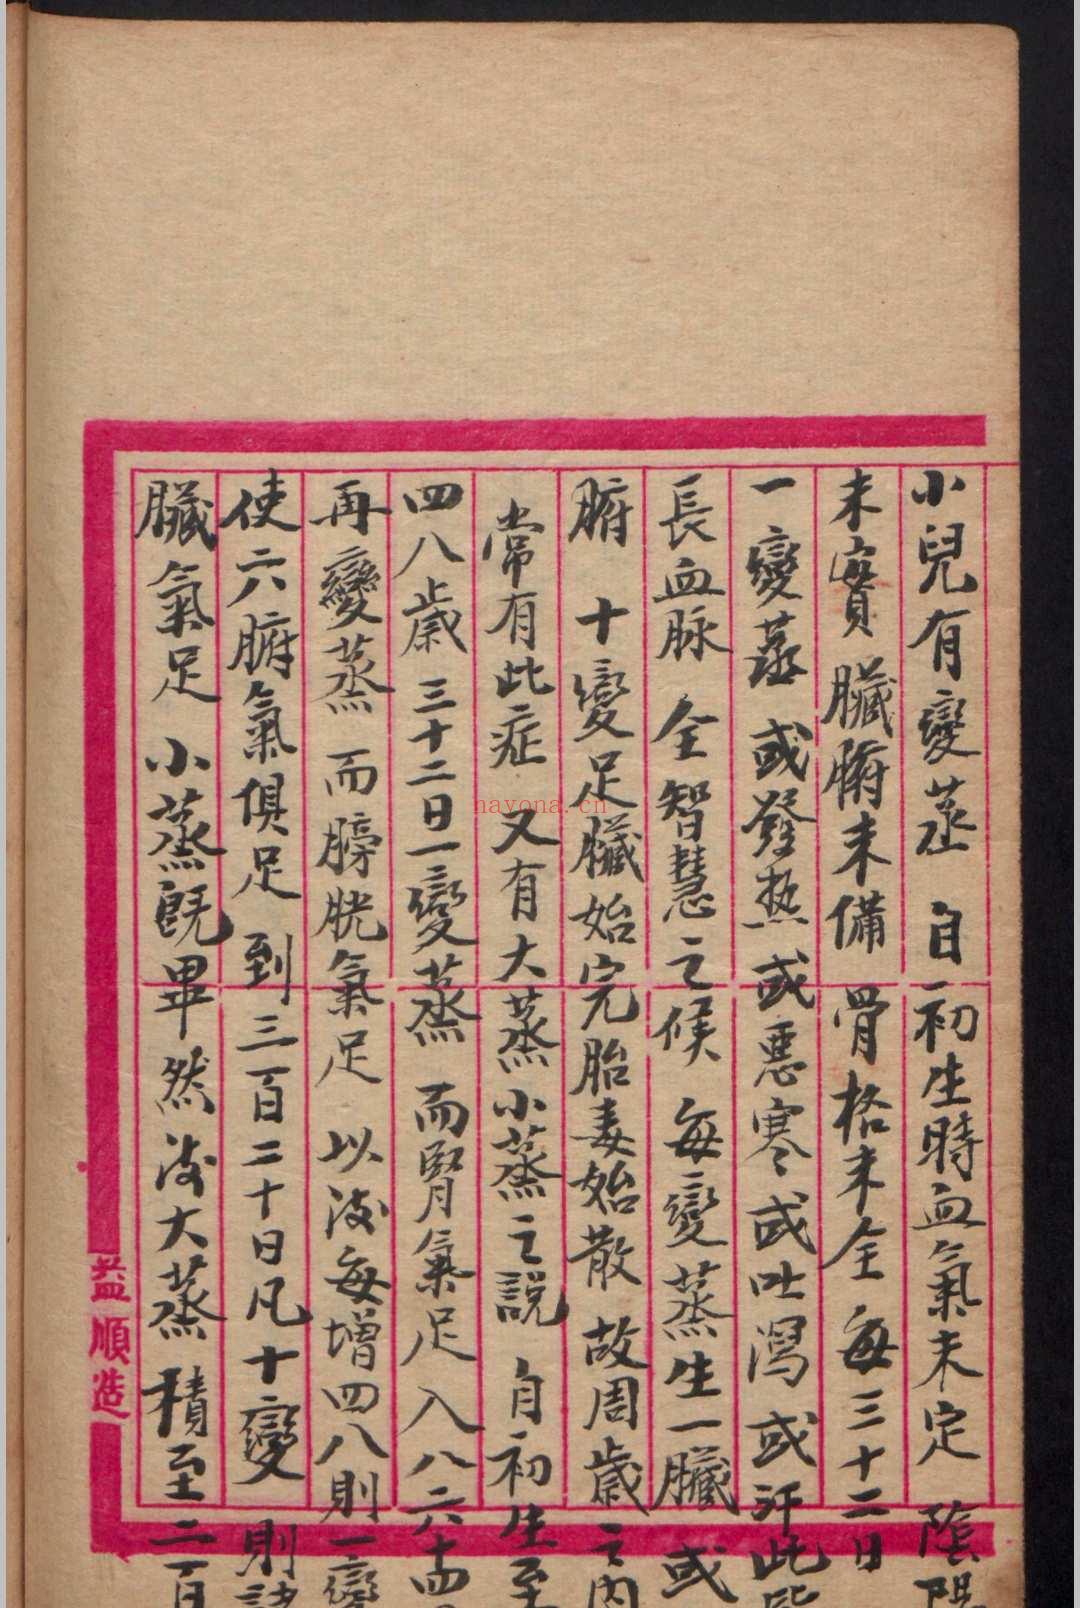 小兒有變蒸 自初生時血氣未定 陰陽
未實 臟腑未備 骨格未全 每三十二日
一變蒸 或發热 或惡寒 或吐瀉 或汗此皆
長血脉 全智慧之候 每變蒸生一臟 或
腑 十變足臟始完胎毒始散 故周歲之内
常有此症 又有大蒸小蒸之説 自初生至
四八歲 三十二日一變蒸 而腎氣足 入八六十四
再變蒸 而膀胱氣足 以後每增四八則一變
使六腑氣俱足 到三百二十日凡十變 則諸
臟氣足 小蒸既畢 然後大蒸 積至二百
益順造
nayona.cn